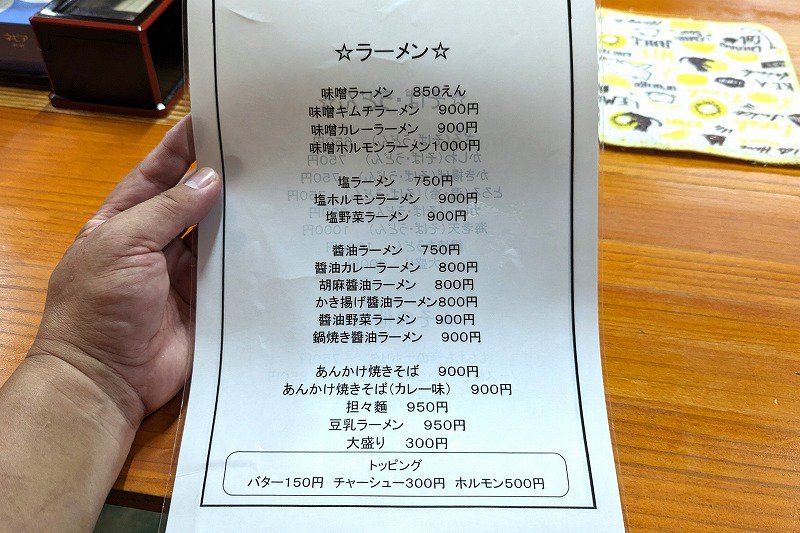 ☆ラーメン☆
味噌ラーメン 850えん
味噌キムチラーメン 900円
味噌カレーラーメン 900円
味噌ホルモンラーメン1000円
塩ラーメン 750円
塩ホルモンラーメン 900円
塩野菜ラーメン 900円
醬油ラーメン 750円
醬油カレーラーメン 800円
胡麻醬油ラーメン 800円
かき揚げ醬油ラーメン800円
醬油野菜ラーメン 900円
鍋焼き醬油ラーメン 900円
あんかけ焼きそば 900円
あんかけ焼きそば(カレー味) 900円
担々麺 950円
豆乳ラーメン 950円
大盛り 300円
トッピング
バター150円 チャーシュー300円 ホルモン500円